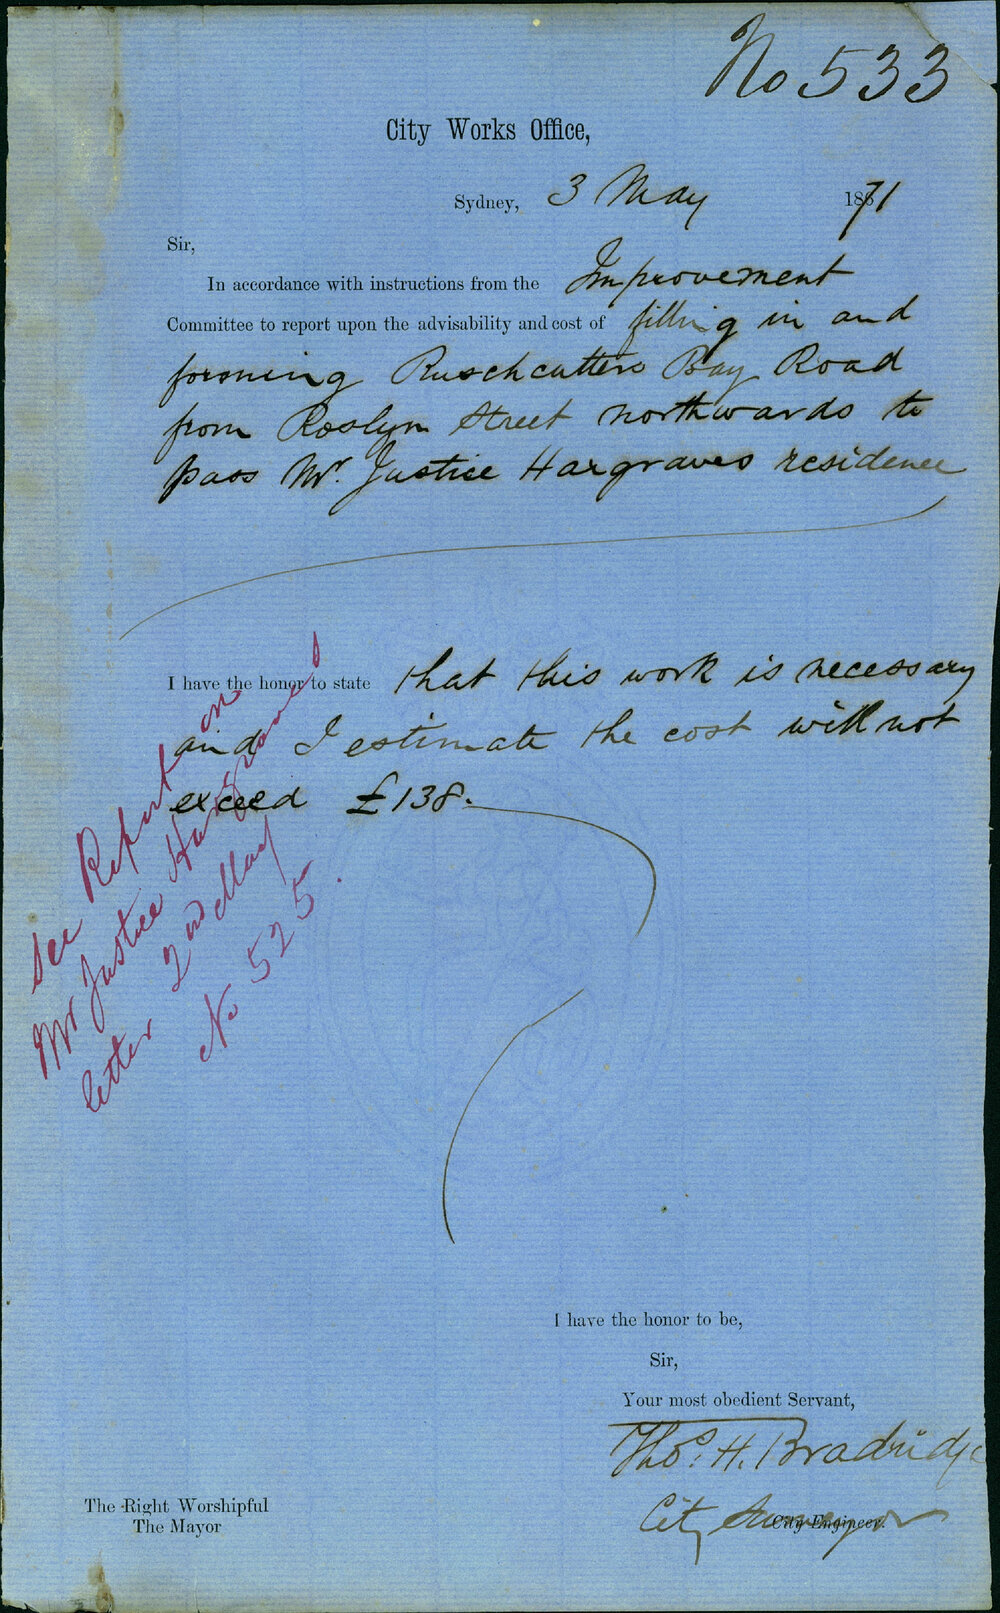 No 533
City Works Office,
Sydney, 3 May 1871
Sir,
In accordance with instructions from the Improvement
Committee to report upon the advisability and cost of filling in and
forming Ruschcutters Bay Road
from Roslyn Street northwards to
pass Mr. Justice Hargraves residence
I have the honor to state that this work is necessary
and I estimate the cost will not
exceed £138.
See Report on
Mr Justice Hargrave's
letter 2nd May
No 525.
I have the honor to be,
Sir,
Your most obedient Servant,
Thos. H. Bradridge
City Surveyor
City Engineer.
The Right Worshipful
The Mayor